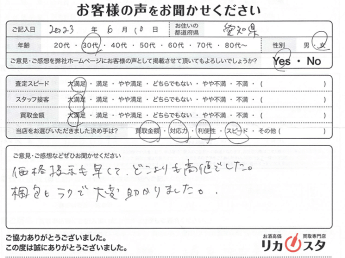 お客様の声をお聞かせください
ご記入日 2023年 6月 10日 お住いの都道府県 愛知県
年齢 20代・30代・40代・50代・60代・70代・80代〜 性別 男・女
ご意見・ご感想を弊社ホームページにお客様の声として掲載させて頂いてもよろしいでしょうか? Yes・No
査定スピード 大満足・満足・やや満足・どちらでもない・やや不満・不満・( )
スタッフ接客 大満足・満足・やや満足・どちらでもない・やや不満・不満・( )
買取金額 大満足・満足・やや満足・どちらでもない・やや不満・不満・( )
当店をお選びいただきました決め手は? 買取金額・対応力・利便性・スピード・その他( )
ご意見・ご感想などぜひお聞かせください
価格提示も早くて、どこよりも高値でした。
梱包もラクで大変助かりました。
ご協力ありがとうございました。
この度は誠にありがとうございました。
お酒高価買取専門店
リカスタ